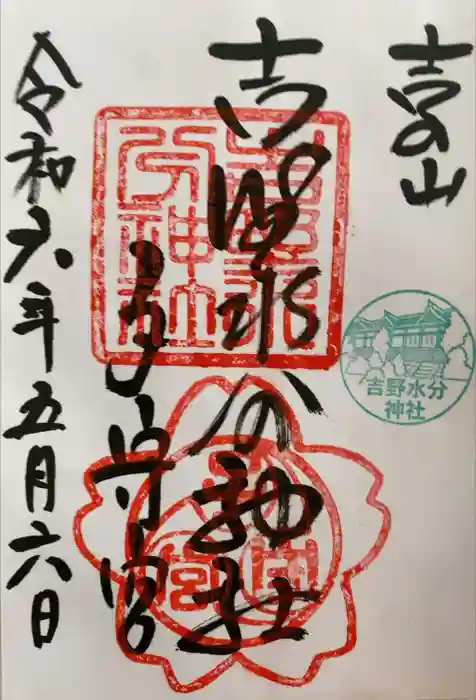 吉野山
吉野水分神社
子守宮
令和六年五月六日
吉野水分神社
吉野水分神社
子守宮